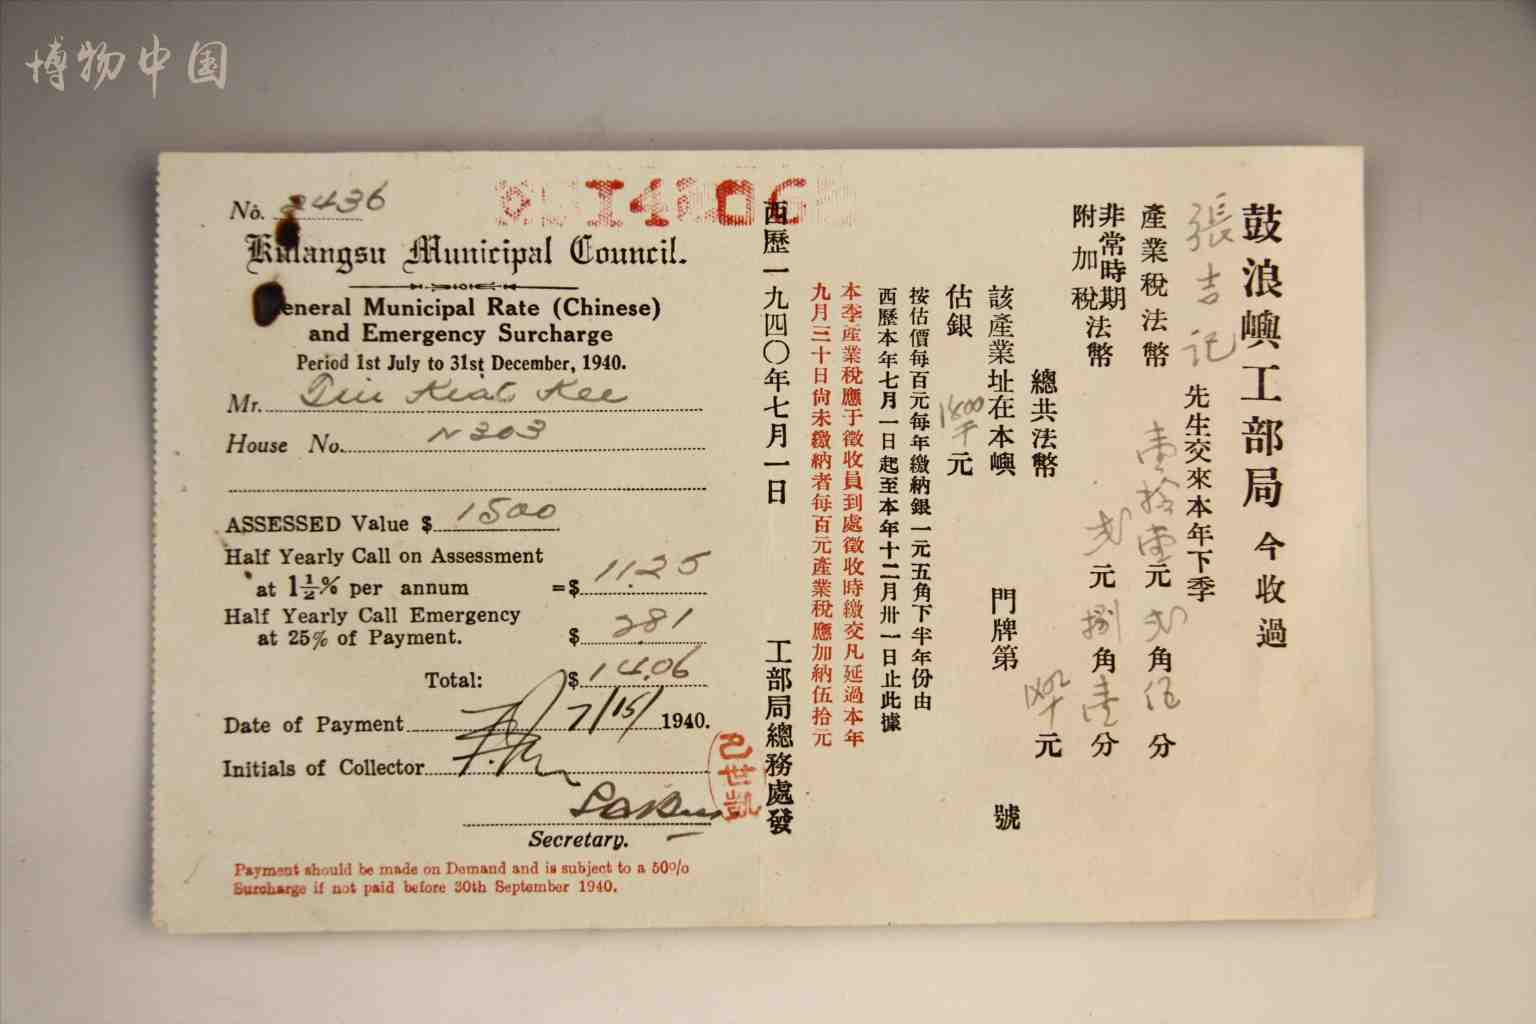 博物中国
No. 2436
Kulangsu Municipal Council.
General Municipal Rate (Chinese)
and Emergency Surcharge
Period 1st July to 31st December, 1940.
Mr. Kiat Kee
House No. N303
ASSESSED Value $ 1500
Half Yearly Call on Assessment
at 1½% per annum =$ 11.25
Half Yearly Call Emergency
at 25% of Payment. $ 2.81
Total: $ 14.06
Date of Payment 7/15/1940.
Initials of Collector
Secretary.
Payment should be made on Demand and is subject to a 50%
Surcharge if not paid before 30th September 1940.
1406
鼓浪嶼工部局今收過
張吉記先生交來本年下季
產業稅法幣壹拾壹元弍角伍分
非常時期附加稅法幣弍元捌角壹分
總共法幣元
該產業址在本嶼門牌第號
估銀元
按估價每百元每年繳納銀一元五角下半年份由
西歷本年七月一日起至本年十二月卅一日止此據
本季產業稅應于徵收員到處徵收時繳交凡延過本年
九月三十日尙未繳納者每百元產業稅應加納伍拾元
西歷一九四〇年七月一日工部局總務處發
巴世凱